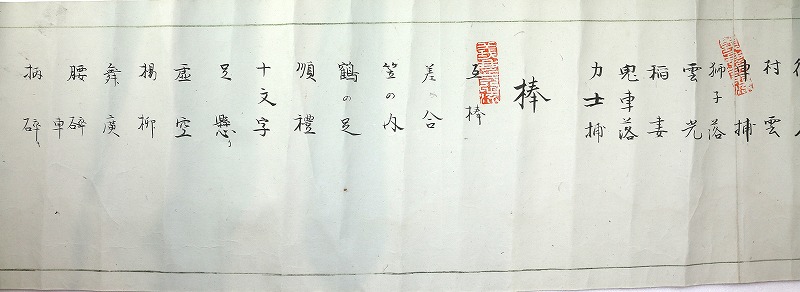 村雲
車捕
獅子落
雲光
稲妻
鬼車落
力士捕
棒
互棒
差合
笠の内
鶴の足
順禮
十文字
足懸り
虚空
楊柳
舞廣
腰車碎
柄碎